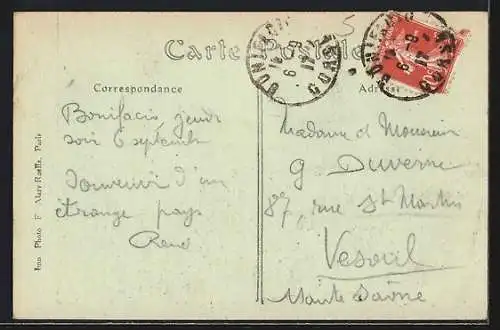 Carte Postale
Correspondance
Adresse
Bonifacio, jeudi
soir 6 septembre
Souvenir d'un
étrange pays
René
Madame et Monsieur
G Duverne
87, rue St Martin
Vesoul
Haute Saône
BONIFACIO
CORSE
Imp. Photo F
Paris
5